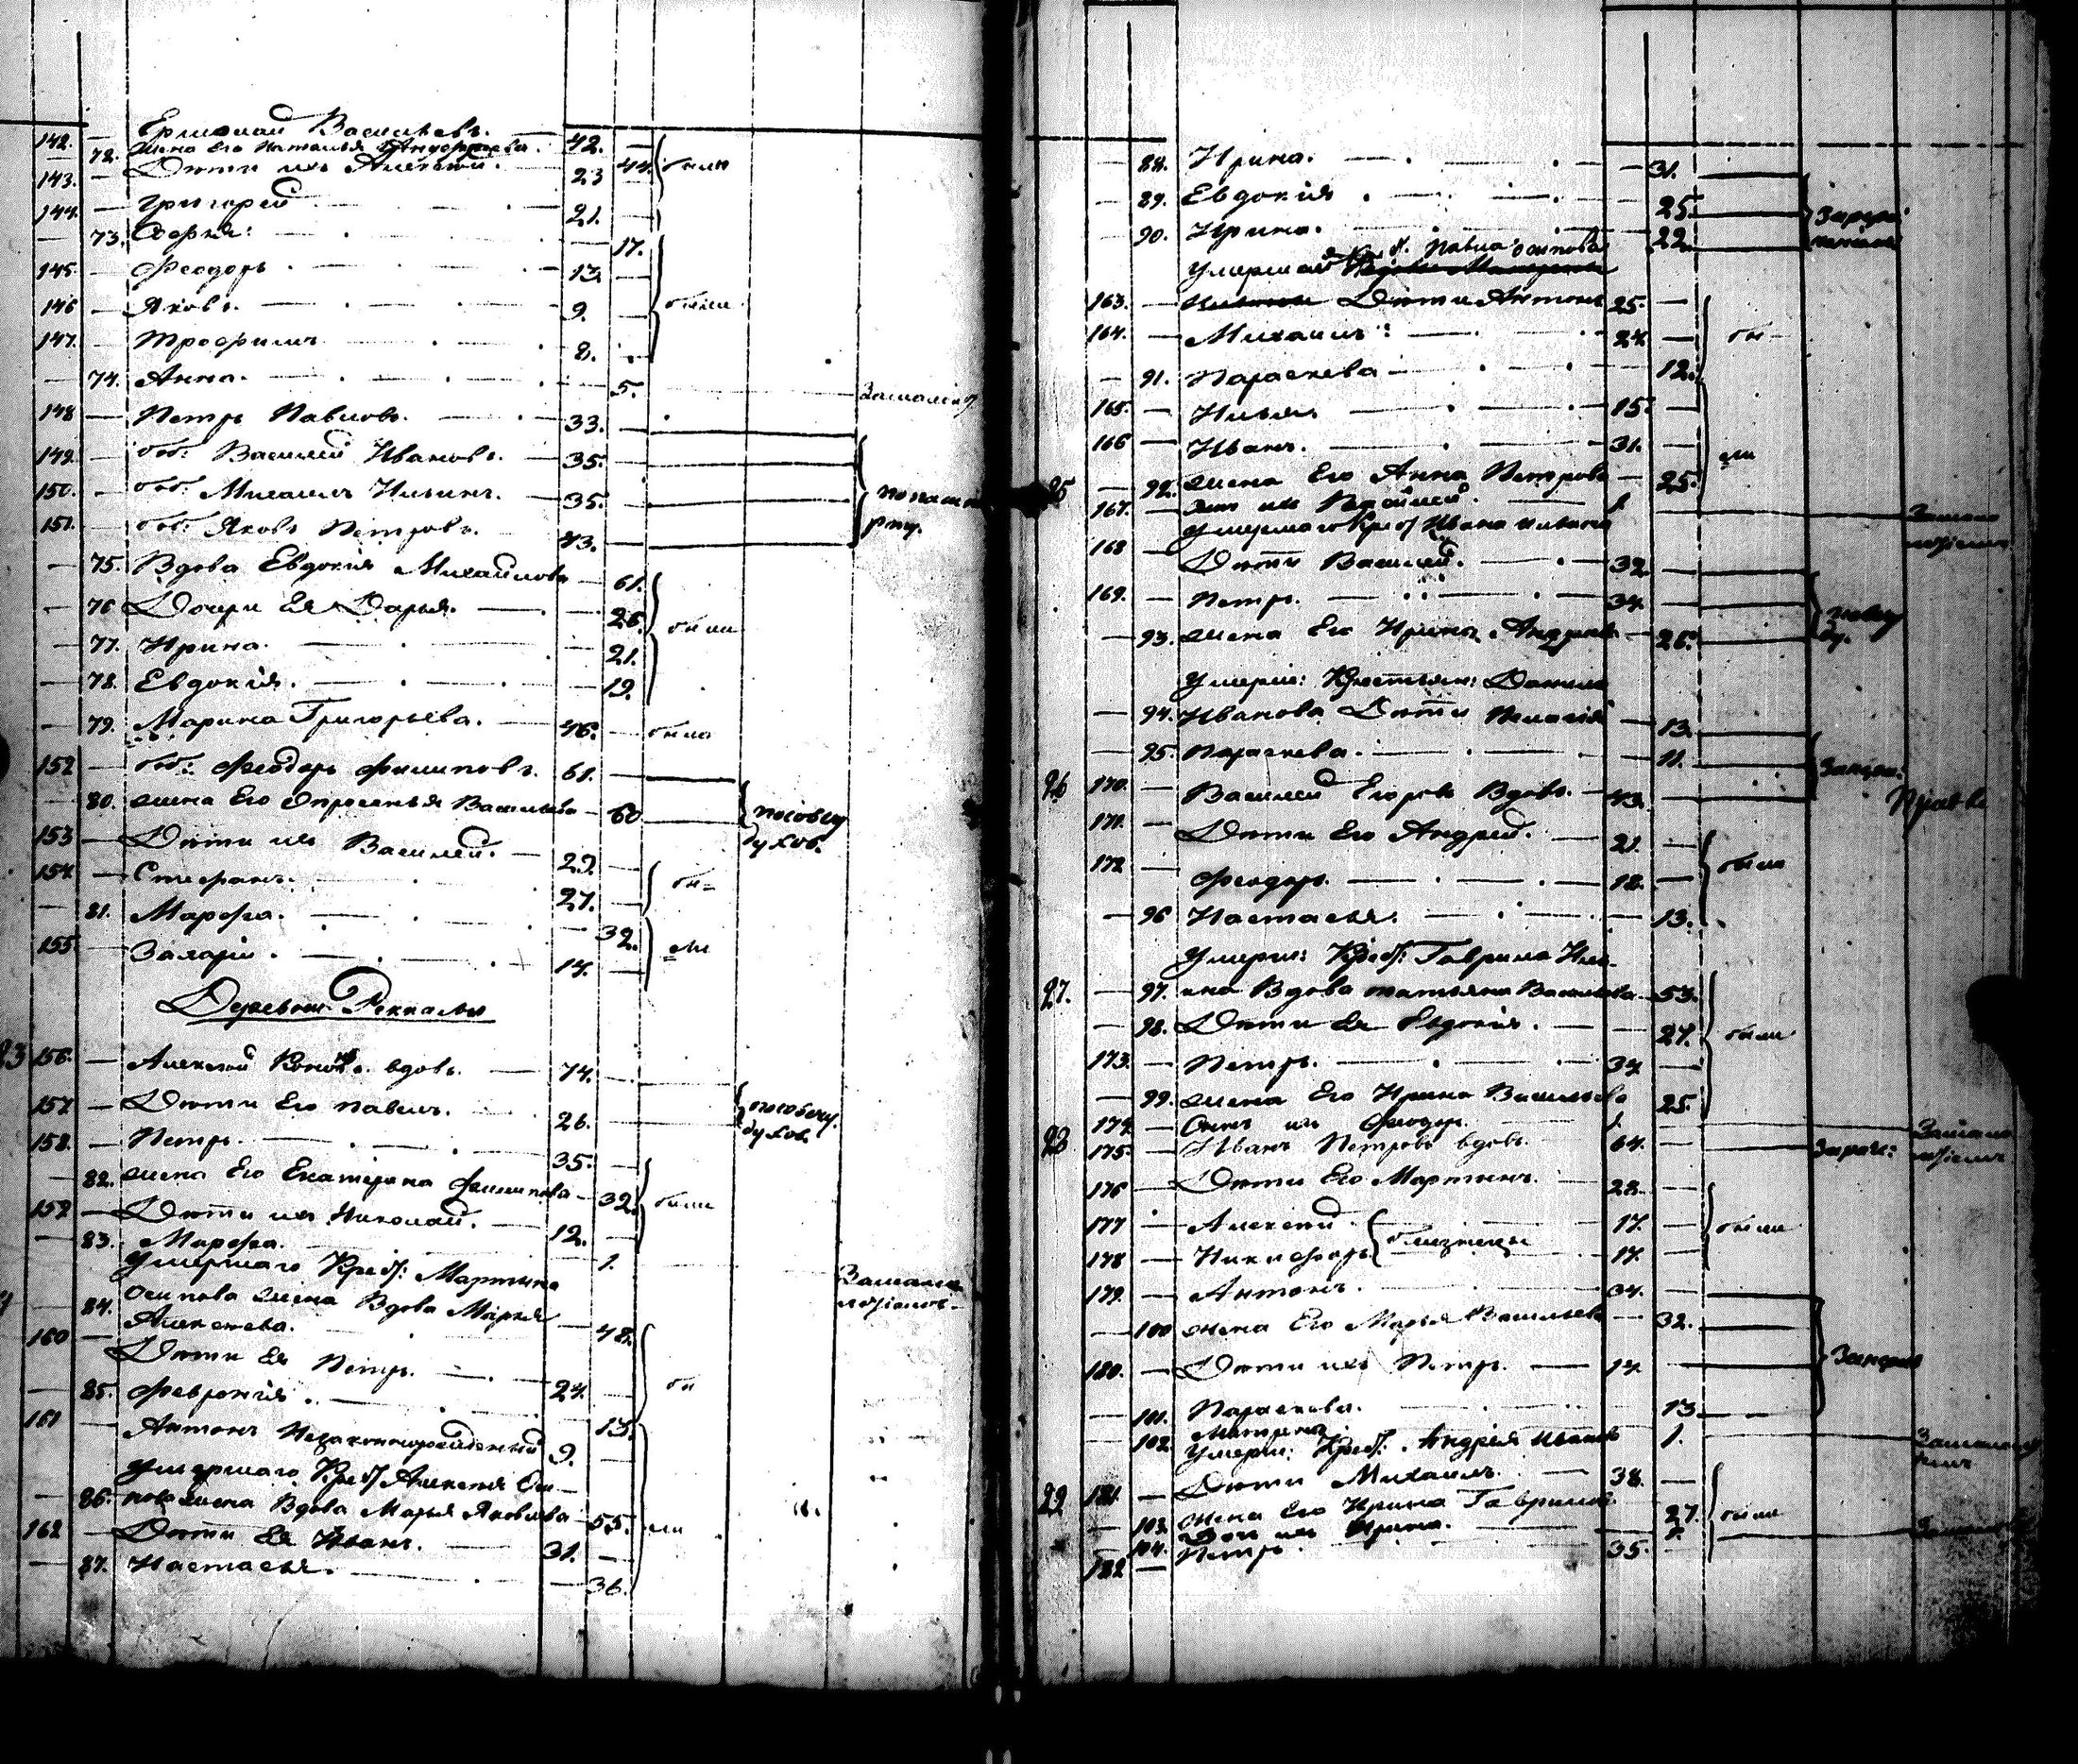 142. — Ермолай Васильевъ. — 42. —
— 72. жена Его Наталья Андреева. — 44. были
143. — Дѣти ихъ Алексей. 23
144. — Григорей — 21. —
— 73. Софья: — 17.
145. — Феодоръ — 13. —
146 — Яковъ. — 9. — были
147. — Трофимъ 8.
— 74. Анна. — 5. За малол.
148 — Петръ Павловъ. — 33. —
149. — боб: Василей Ивановъ. — 35. —
150. — боб: Михаилъ Ильинъ. — 35. — по пашпорту.
151. — боб: Яковъ Петровъ. 43. —
— 75. Вдова Евдокия Михайлова — 61.
— 76 Дочери Ея Дарья. — 26. были
— 77. Ирина. — 21.
— 78. Евдокія. — 19.
— 79. Марина Григорьева. — 46. — была
152 — боб: Феодоръ Филиповъ. 61. —
— 80. жена Его Епросенья Васильева — 60 по совету духов.
153 — Дѣти ихъ Василей. — 29. —
154. — Стефанъ. 27. — бы-
— 81. Марфа. — 32.
155. — Захарій. — 14. — ли
Деревня Реккала
23 156. — Алексей вдовъ. — 74. —
157 — Дѣти Его Павелъ. 26. — по совету духов.
158. — Петръ. — 35. —
— 82. жена Его Екатерина Филипова — 32. были
159 — Дѣти ихъ Николай. — 12. —
— 83. Марфа. — 1. За малолѣтіемъ.
Умершаго Крест: Мартына
— 84. Осипова жена Вдова Марья
Алексеева. — 48.
160 — Дѣти Ея Петръ. — 24. — бы
— 85. Феврония. 13.
161 — Антонъ Незаконнорожденный 9. —
Умершаго Крест Алексея Оси-
— 86. пова жена Вдова Марья Яковлева — 55. ли
162 — Дѣти Ея Иванъ. — 31. —
— 87. Настасья. — 36.
— 88. Ирина. — 31. —
— 89. Евдокия. — 25.
— 90. Ирина. — 22.
Умершаго Кр. Павла Осипова
163. — Дѣти Антонъ 25. —
164. — Михаилъ: — 24 — бы-
— 91. Параскева — 12.
165. — Илья. — 15. —
166 — Иванъ. — 31. — ли
25 — 92. жена Его Анна Петрова — 25.
167. — сын ихъ 1 За малолѣтіемъ
Умершаго Крест Ивана Иванова
168 — Дѣти Василей. — 32 —
169. — Петръ. — 34. —
— 93. жена Его Ирина Андреева — 26.
Умерш: Крестьян: Данила
— 94. Иванова Дѣти — 13.
— 95. Параскева. — 11.
26 170. — Василей Егоровъ Вдовъ. — 43. —
171. — Дѣти Его Андрей. 21. —
172 — Феодоръ. — 18. — были
— 96 Настасья. — 13.
Умерш: Крест: Гаврила Иль-
27. — 97. ина Вдова Татьяна Васильева 53.
— 98. Дѣти Ея Евдокия. — 27. были
173. — Петръ. — 34 —
— 99. жена Его Ирина Васильева 25.
174. — Сынъ ихъ Феодоръ. 1. За малолѣтіемъ
28 175. — Иванъ Петровъ вдовъ. 64. —
176 — Дѣти Его Мартинъ. — 28. —
177 — Алексей 17. — были
178 — Никифоръ близнецы 17. —
179. — Антонъ. — 34. —
— 100 жена Его Марья Васильева — 32.
180. — Дѣти ихъ Петръ. — 14. —
— 101. Параскева. 13
— 102. Матрена 1.
Умерш: Крест: Андрея Иванова
29 181. — Дѣти Михаилъ. — 38. —
— 103. жена Его Ирина Гаврилова 27. были
— 104. Дочь ихъ Ирина.
182 — Петръ. — 35. —